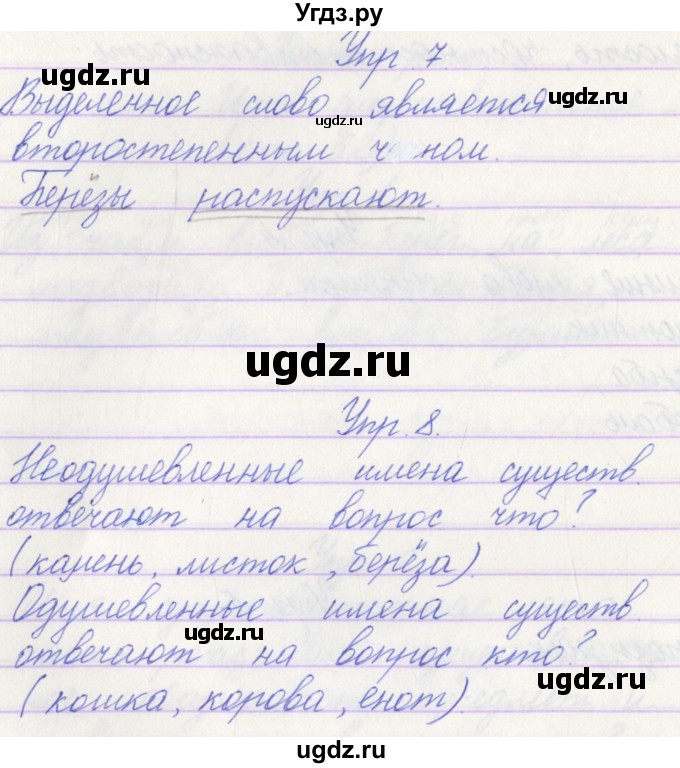 Угдз.ру
Упр. 7.
ugdz.ru
Выделенное слово является
ugdz.ru
ugdz.ru
второстепенным членом.
Берёзы распускают.
ugdz.ru
Упр. 8.
Неодушевленные имена существ.
отвечают на вопрос что?
(камень, листок, берёза).
Одушевленные имена существ.
ugdz.ru
отвечают на вопрос кто?
ugdz.ru
(кошка, корова, енот).
ugdz.ru